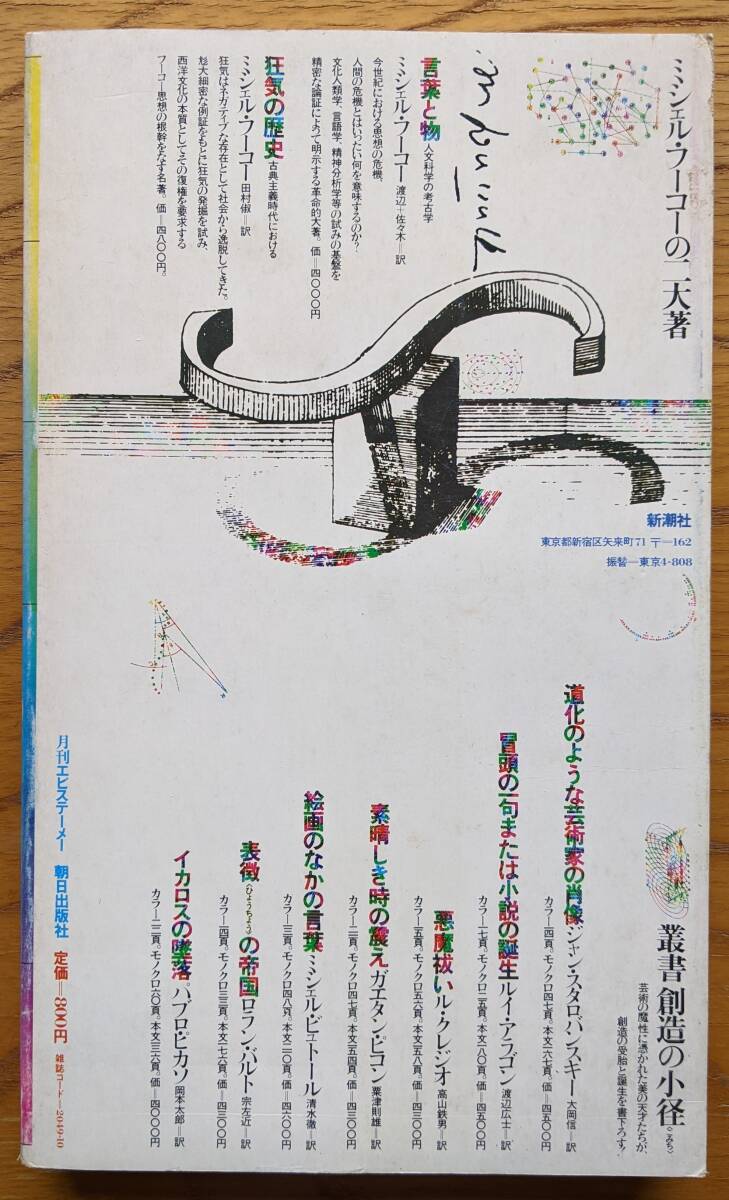 ミシェル・フーコーの二大著
言葉と物 人文科学の考古学
ミシェル・フーコー 渡辺+佐々木=訳
今世紀における思想の危機、
人間の危機とはいったい何を意味するのか?
文化人類学、言語学、精神分析学等の試みの基盤を
精密な論証によって明示する革命的大著。価=四〇〇〇円
狂気の歴史 古典主義時代における
ミシェル・フーコー 田村俶=訳
狂気はネガティブな存在として社会から逸脱してきた。
尨大細密な例証をもとに狂気の発掘を試み、
西洋文化の本質としてその復権を要求する
フーコー思想の根幹をなす名著。価=四八〇〇円。
新潮社
東京都新宿区矢来町71 〒—162
振替—東京4-808
叢書 創造の小径〈こみち〉
芸術の魔性に憑かれた美の天才たちが、
創造の受胎と誕生を書下ろす!
道化のような芸術家の肖像 ジャン・スタロバンスキー 大岡信=訳
カラー一四頁。モノクロ四七頁。本文一六七頁。価=四五〇〇円
冒頭の一句または小説の誕生 ルイ・アラゴン 渡辺広士=訳
カラー一七頁。モノクロ二五頁。本文一八〇頁。価=四五〇〇円
悪魔祓い ル・クレジオ 高山鉄男=訳
カラー一五頁。モノクロ五六頁。本文一五八頁。価=四三〇〇円
素晴しき時の震え ガエタン・ピコン 粟津則雄=訳
カラー二一頁。モノクロ四七頁。本文一五四頁。価=四三〇〇円
絵画のなかの言葉 ミシェル・ビュトール 清水徹=訳
カラー二三頁。モノクロ四八頁。本文二二〇頁。価=四六〇〇円
表徴〈ひょうちょう〉の帝国 ロラン・バルト 宗左近=訳
カラー一四頁。モノクロ三三頁。本文一七六頁。価=四三〇〇円
イカロスの墜落。パブロ・ピカソ 岡本太郎=訳
カラー二二頁。モノクロ六〇頁。本文一三六頁。価=四〇〇〇円
月刊エピステーメー 朝日出版社 定価=800円 雑誌コード—2049-10